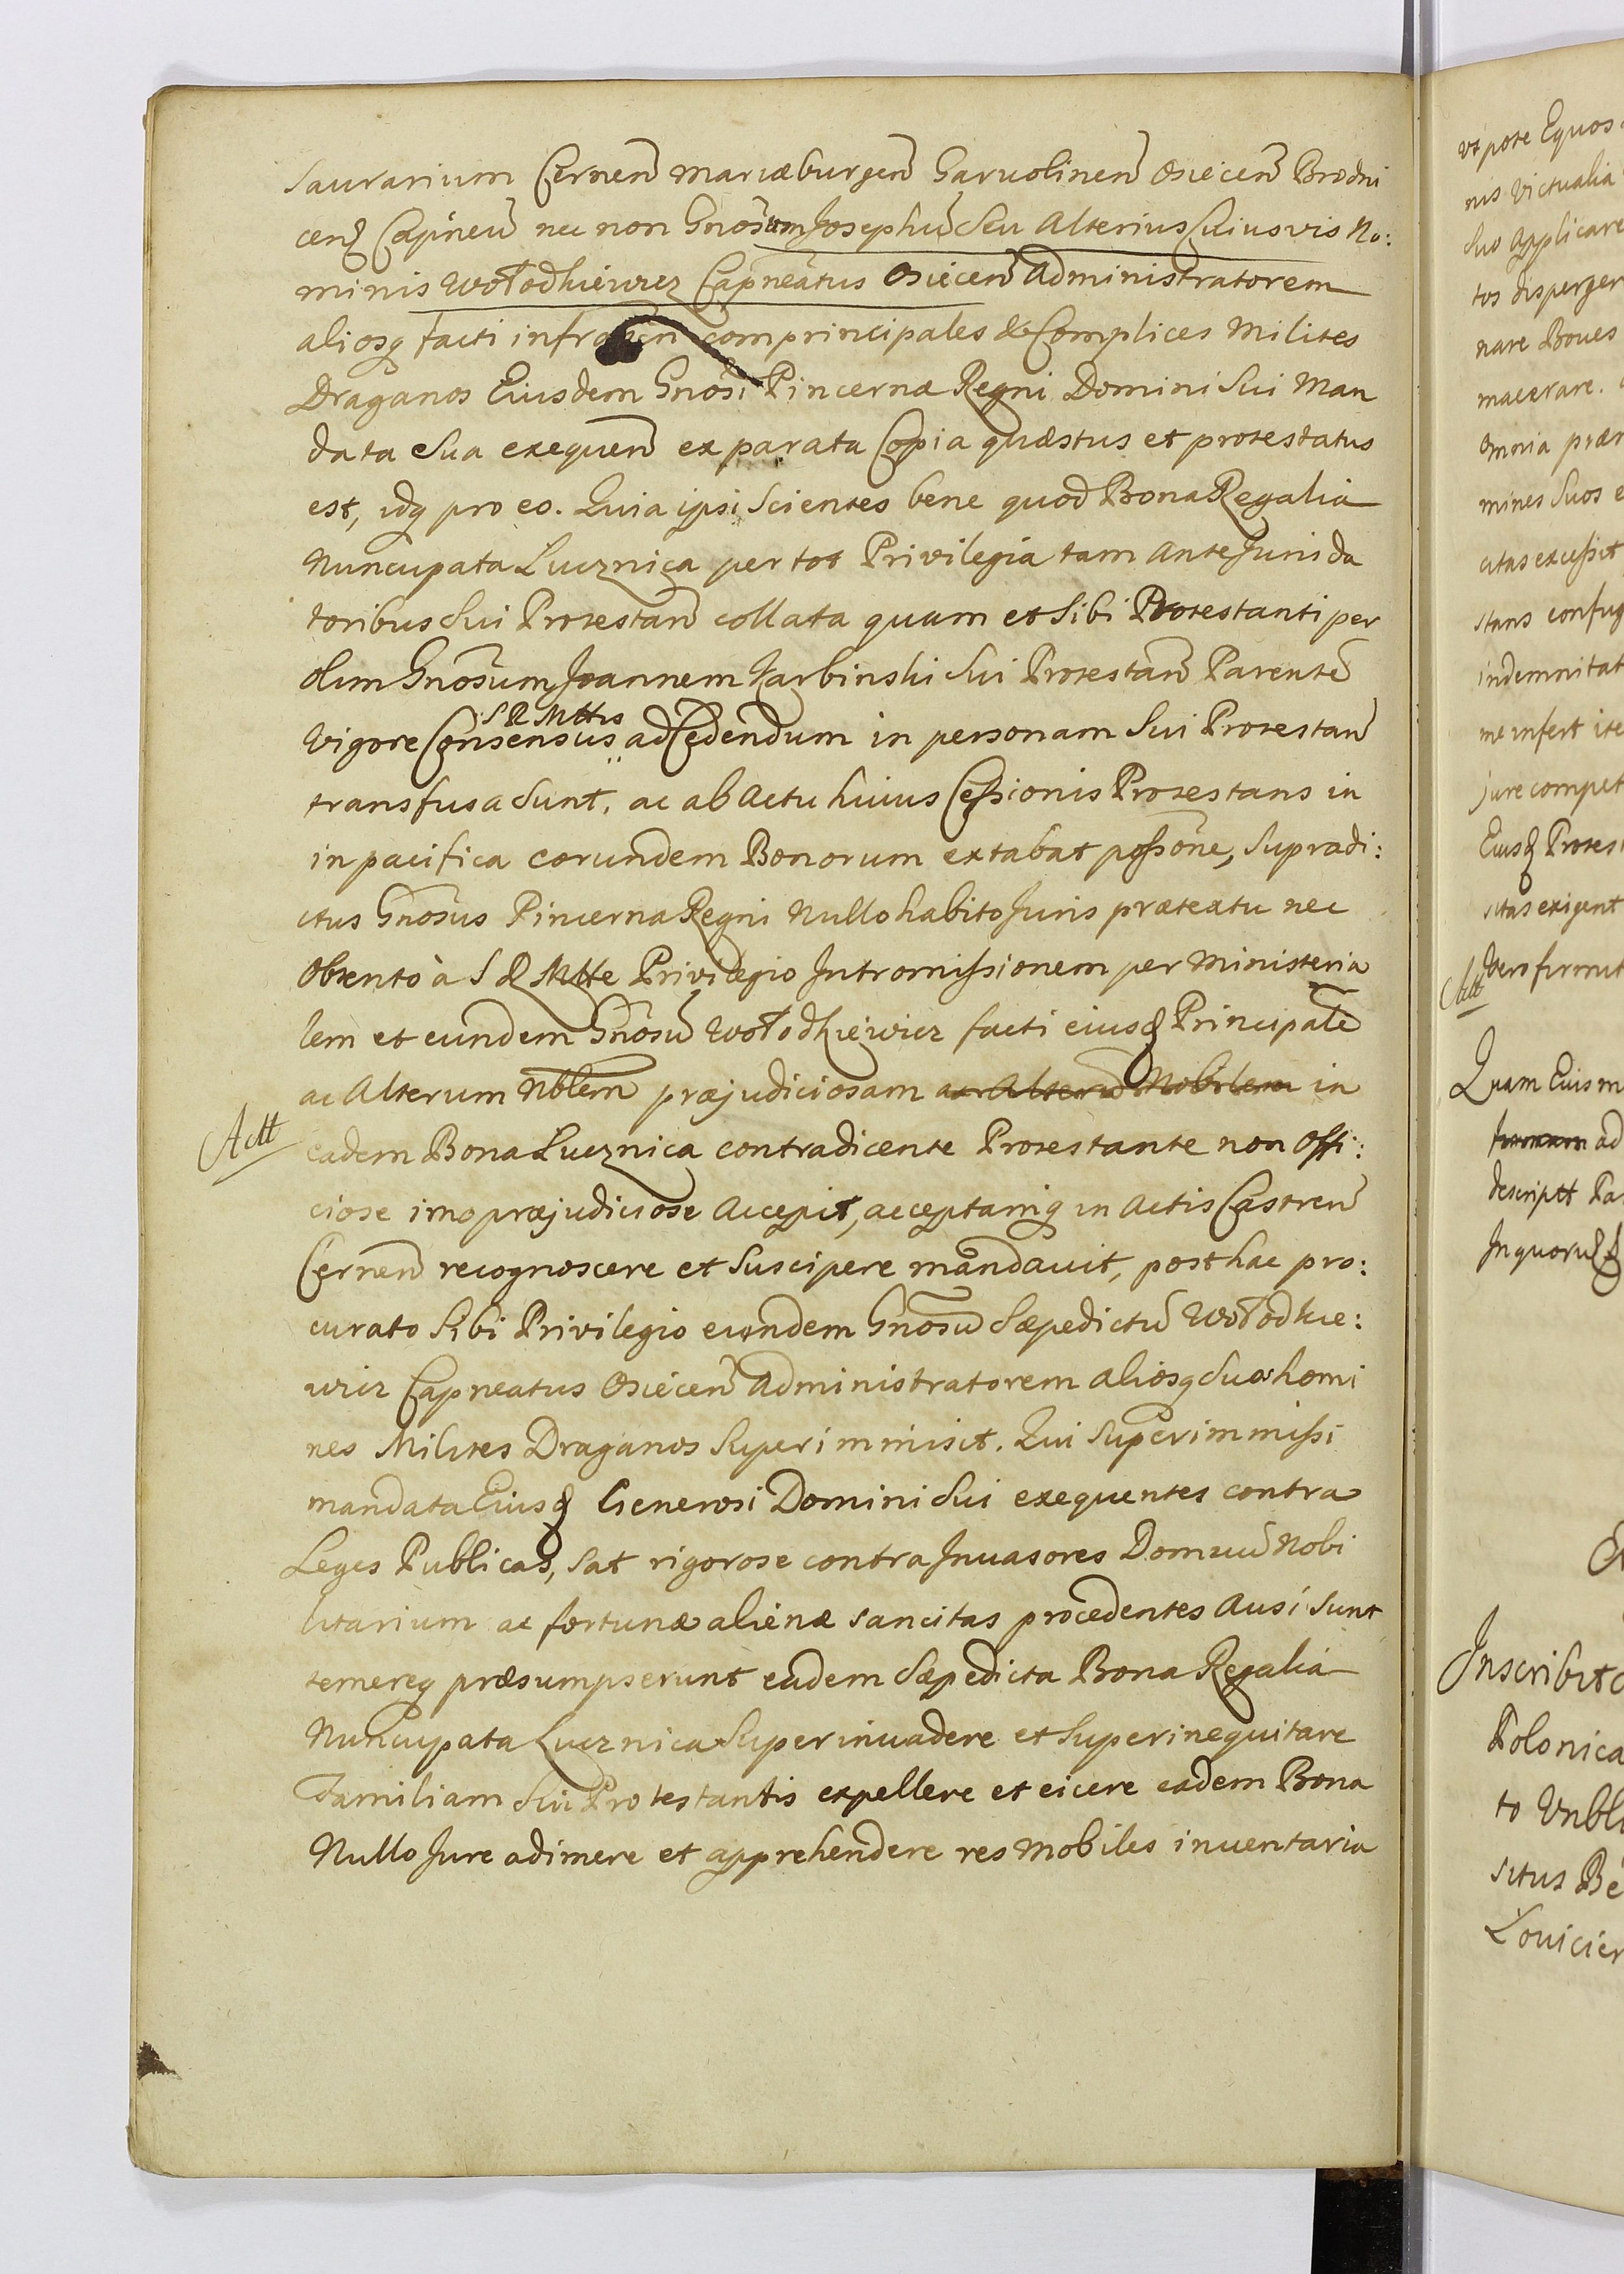 saurarium Cernen̄ Mariæburgen̄ Garuolinen̄ Osiecen̄ Brodni
cenȝ Capneū nec non Gnosum Josephū seu Alterius Cuiusvis No:
minis Wołodkiewicz Capneatus Osiecen̄ Administratorem
aliosq facti infrascn comprincipales & Complices Milites
Draganos Eiusdem Gnosi Pincernæ Regni Domini Sui Man
data sua exequen̄ ex parata Copia quæstus et protestatus
est, idq pro eo. Quia ipsi scientes bene quod Bona Regalia
Nuncupata Łucznica per tot Privilegia tam Ante Juri da
toribus sui Protestan̄ collata quam et sibi Protestanti per
olim Gnosum Joannem Zarbinski sui Protestan̄ Parentē
S R Mttis
vigore Consensus ad Cedendum in personam sui Protestan̄
transfusa sunt, ac ab actu huius Cessionis Protestans in
in pacifica eorundem Bonorum extabat possone, supradi:
ctus Gnosus Pincerna Regni Nullo habito Juris prætextu nec
Obtento à S R Mtte Privilegio Intromissionem per Ministeria
lem et eundem Gnosū Wołodkiewicz facti eiusȝ Principalē
ac Alterum Nblem præjudiciosam ac Alterū Nobilem in
Actt
eadem Bona Łucznica contradicente Protestante non Offi:
ciose imo præjudiciose Accepit, acceptamq in Actis Castren̄
Cernen̄ recognoscere et suscipere mandauit, post hac pro:
curato sibi Privilegio eundem Gnosū sæpedictū Wołodkie:
wicz Capneatus Osiecen̄ Administratorem aliosq suos homi
nes Milites Draganos superimmisit. Qui superimmissi
mandata Eiusȝ Generosi Domini sui exequentes contra
Leges Publicas, sat rigorose contra Inuasores Domuū Nobi
litarium ac fortunæ alienæ sancitas procedentes Ausi sunt
temereq præsumpserunt eadem sæpedicta Bona Regalia
Nuncupata Łucznica superinuadere et superinequitare
Familiam sui Protestantis expellere et eicere eadem Bona
Nullo Jure adimere et apprehendere res mobiles inuentaria
vt pote Equos
nis Victualia
suo Applicare
tos disperger
nare Boues
macerare.
Omnia præ
mines suos e
citas excessit
stans confug
indemnitat
me infert ite
jure compet
Eiusȝ Protest
sitas exigent
Actt
Vero firmit
Quam Eius m
ad
descriptt Pa
In quorū
Inscribit
Polonica
to Vnbli
situs Be
Łouicien